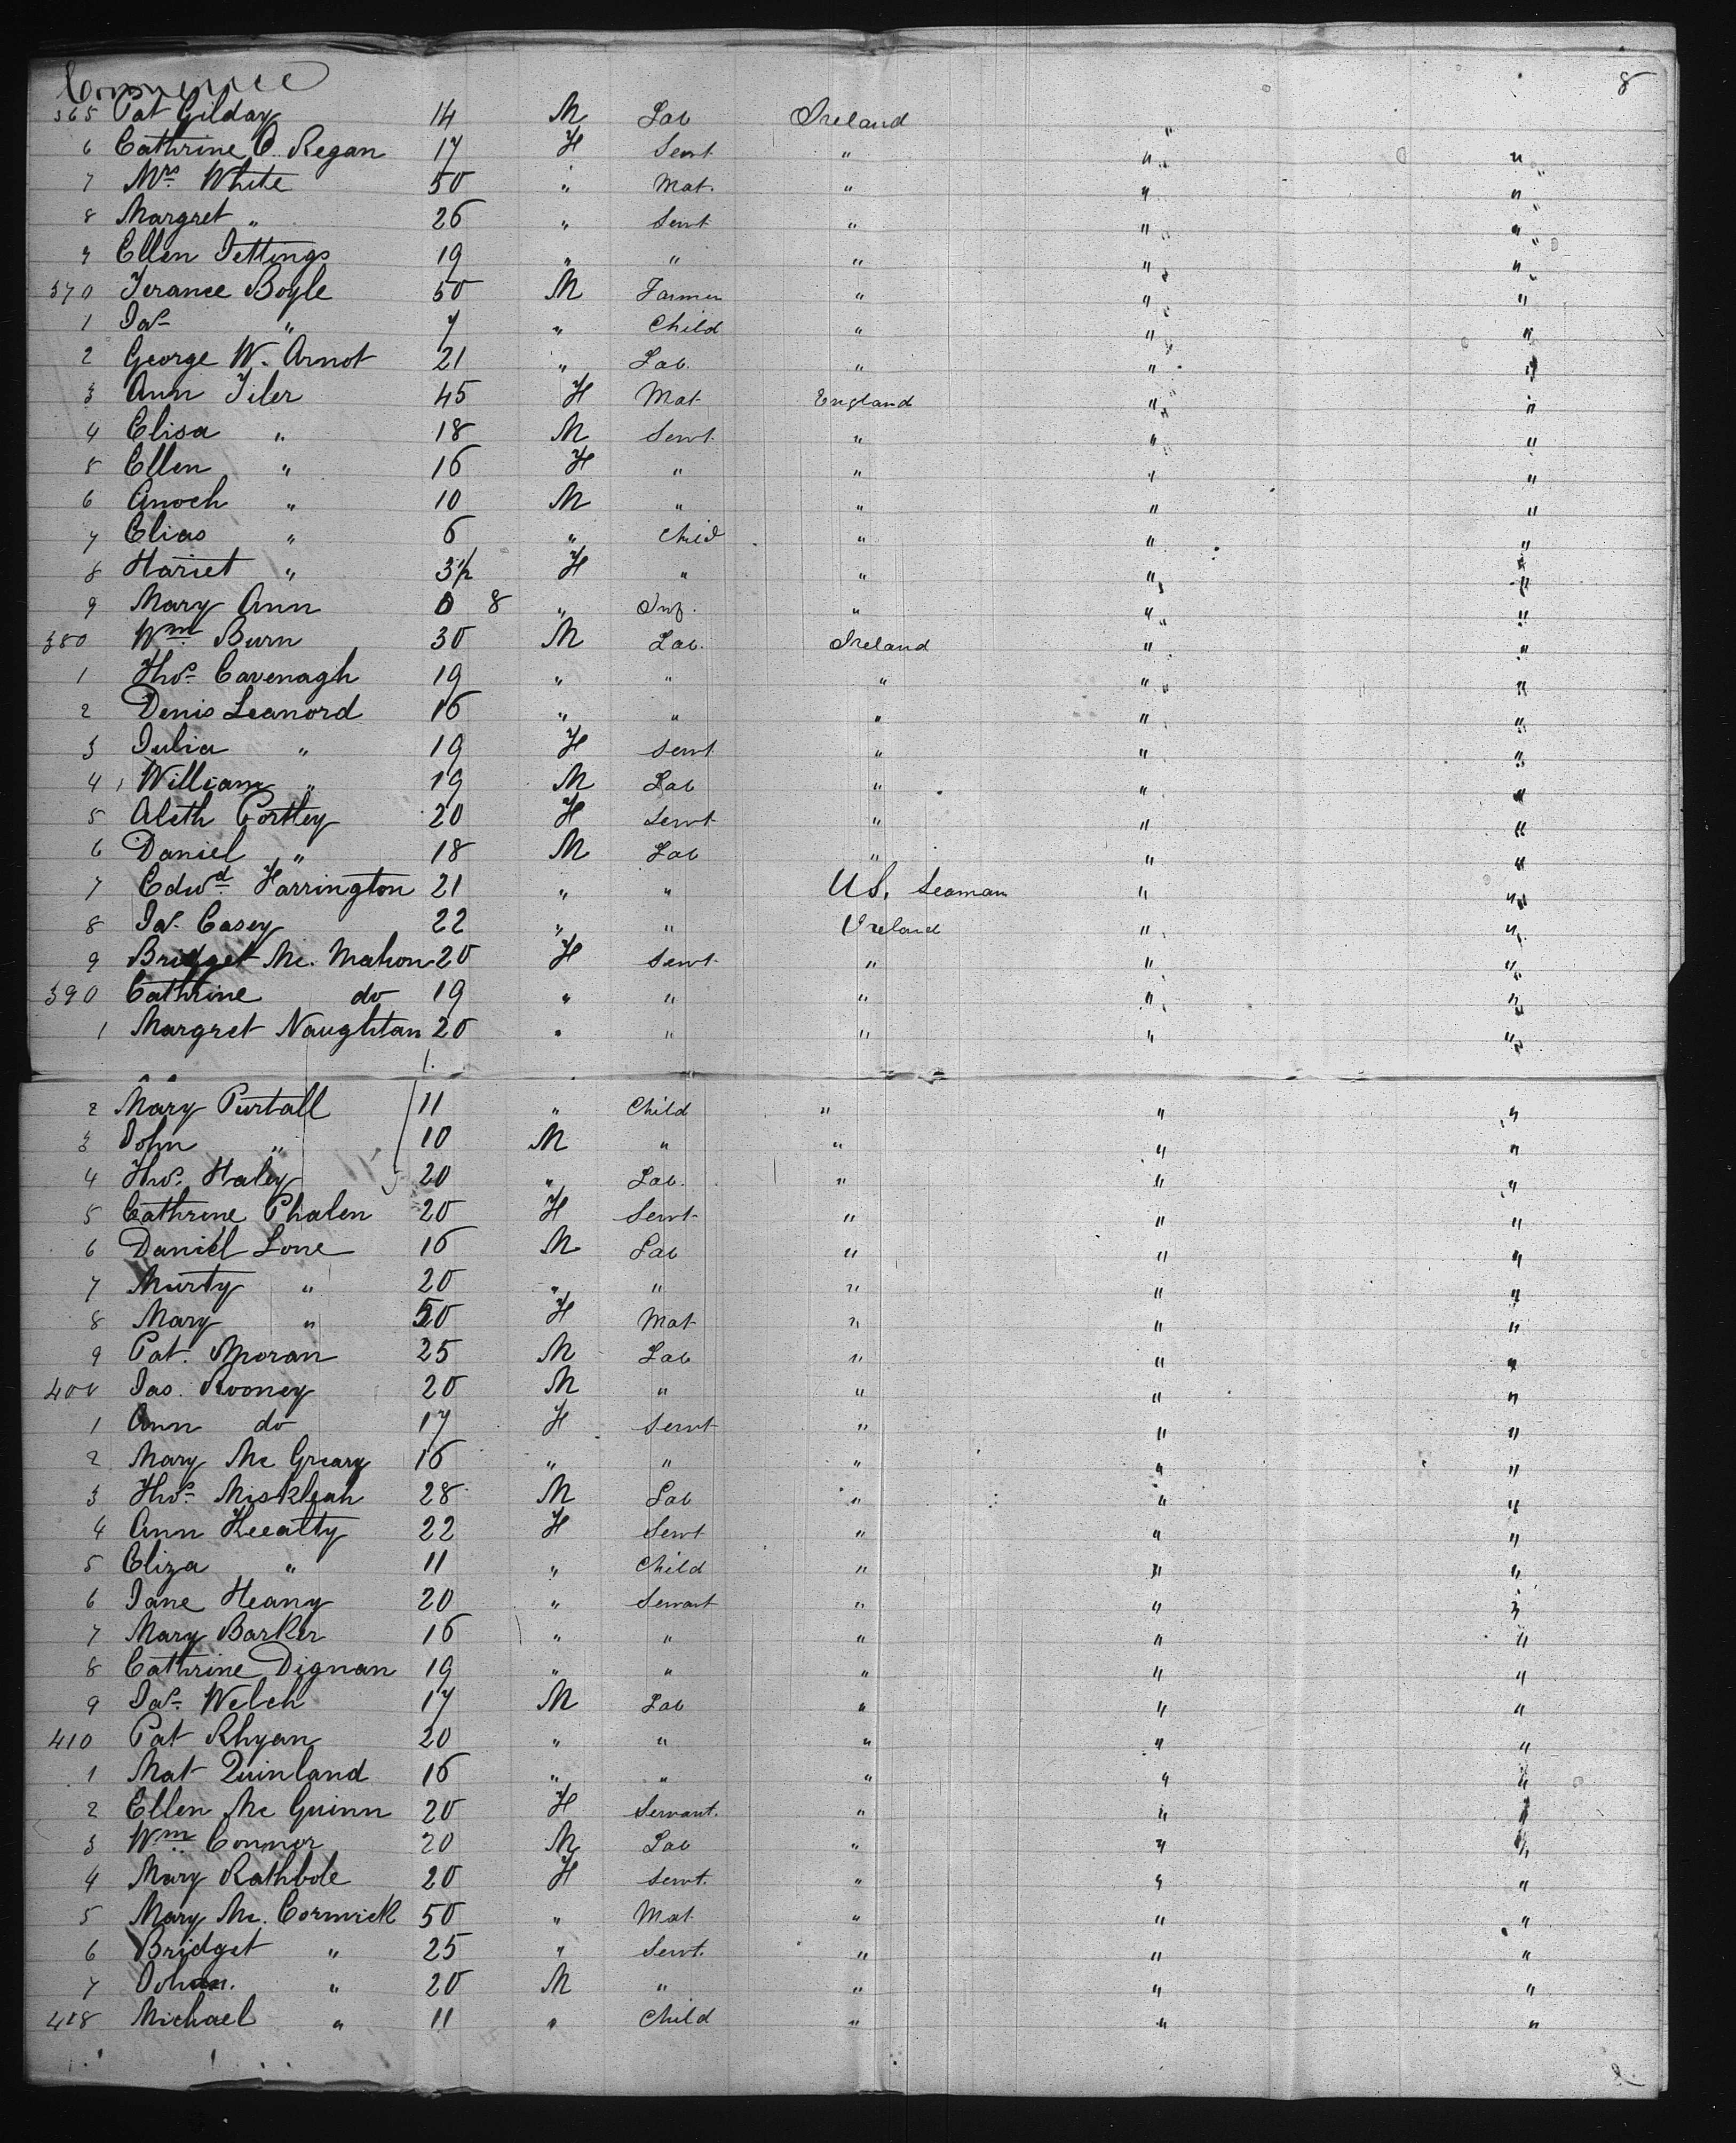 Commerce 8
365 Pat Gilday 14 M Lab Ireland "
6 Cathrine O. Regan 17 F Servt " " "
7 Mrs White 50 " Mat. " " "
8 Margret " 26 " Servt " " "
9 Ellen Jettings 19 " " " " "
370 Terance Boyle 50 M Farmer " " "
1 Jas " 7 " Child " " "
2 George W. Arnot 21 " Lab. " " "
3 Ann Tiler 45 F Mat England " "
4 Elisa " 18 M Servt. " " "
5 Ellen " 16 F " " " "
6 Anoch " 10 M " " " "
7 Elias " 6 " Child " " "
8 Hariet " 3½ F " " " "
9 Mary Ann 0 8 " Inf. " " "
380 Wm Burn 30 M Lab. Ireland " "
1 Thos Cavenagh 19 " " " " "
2 Denis Leanord 16 " " " " "
3 Julia " 19 F Servt " " "
4 William " 19 M Lab " " "
5 Aleth Portley 20 F Servt " " "
6 Daniel " 18 M Lab " " "
7 Edwd Farrington 21 " " US. Seaman " "
8 Jas. Casey 22 " " Ireland " "
9 Bridget Mc. Mahon 20 F Servt " " "
390 Cathrine do 19 " " " " "
1 Margret Naughtan 20 " " " " "
2 Mary Purtall 11 " Child " " "
3 John " 10 M " " " "
4 Thos. Haley 20 " Lab. " " "
5 Cathrine Phalen 20 F Servt " " "
6 Daniel Lone 16 M Lab " " "
7 Murty " 20 " " " " "
8 Mary " 50 F Mat " " "
9 Pat. Moran 25 M Lab " " "
400 Jas. Rooney 20 M " " " "
1 Ann do 17 F Servt " " "
2 Mary Mc Greary 16 " " " " "
3 Thos. Miskleah 28 M Lab " " "
4 Ann Keealty 22 F Servt " " "
5 Eliza " 11 " Child " " "
6 Jane Heany 20 " Servant " " "
7 Mary Barker 16 " " " " "
8 Cathrine Dignan 19 " " " " "
9 Jas. Welch 17 M Lab " " "
410 Pat Rhyan 20 " " " " "
1 Mat Quinland 16 " " " " "
2 Ellen Mc Guinn 20 F Servant. " " "
3 Wm Connor 20 M Lab " " "
4 Mary Rathbole 20 F Servt. " " "
5 Mary Mc. Cormick 50 " Mat " " "
6 Bridget " 25 " Servt. " " "
7 " 20 M " " " "
418 Michael " 11 " Child " " "